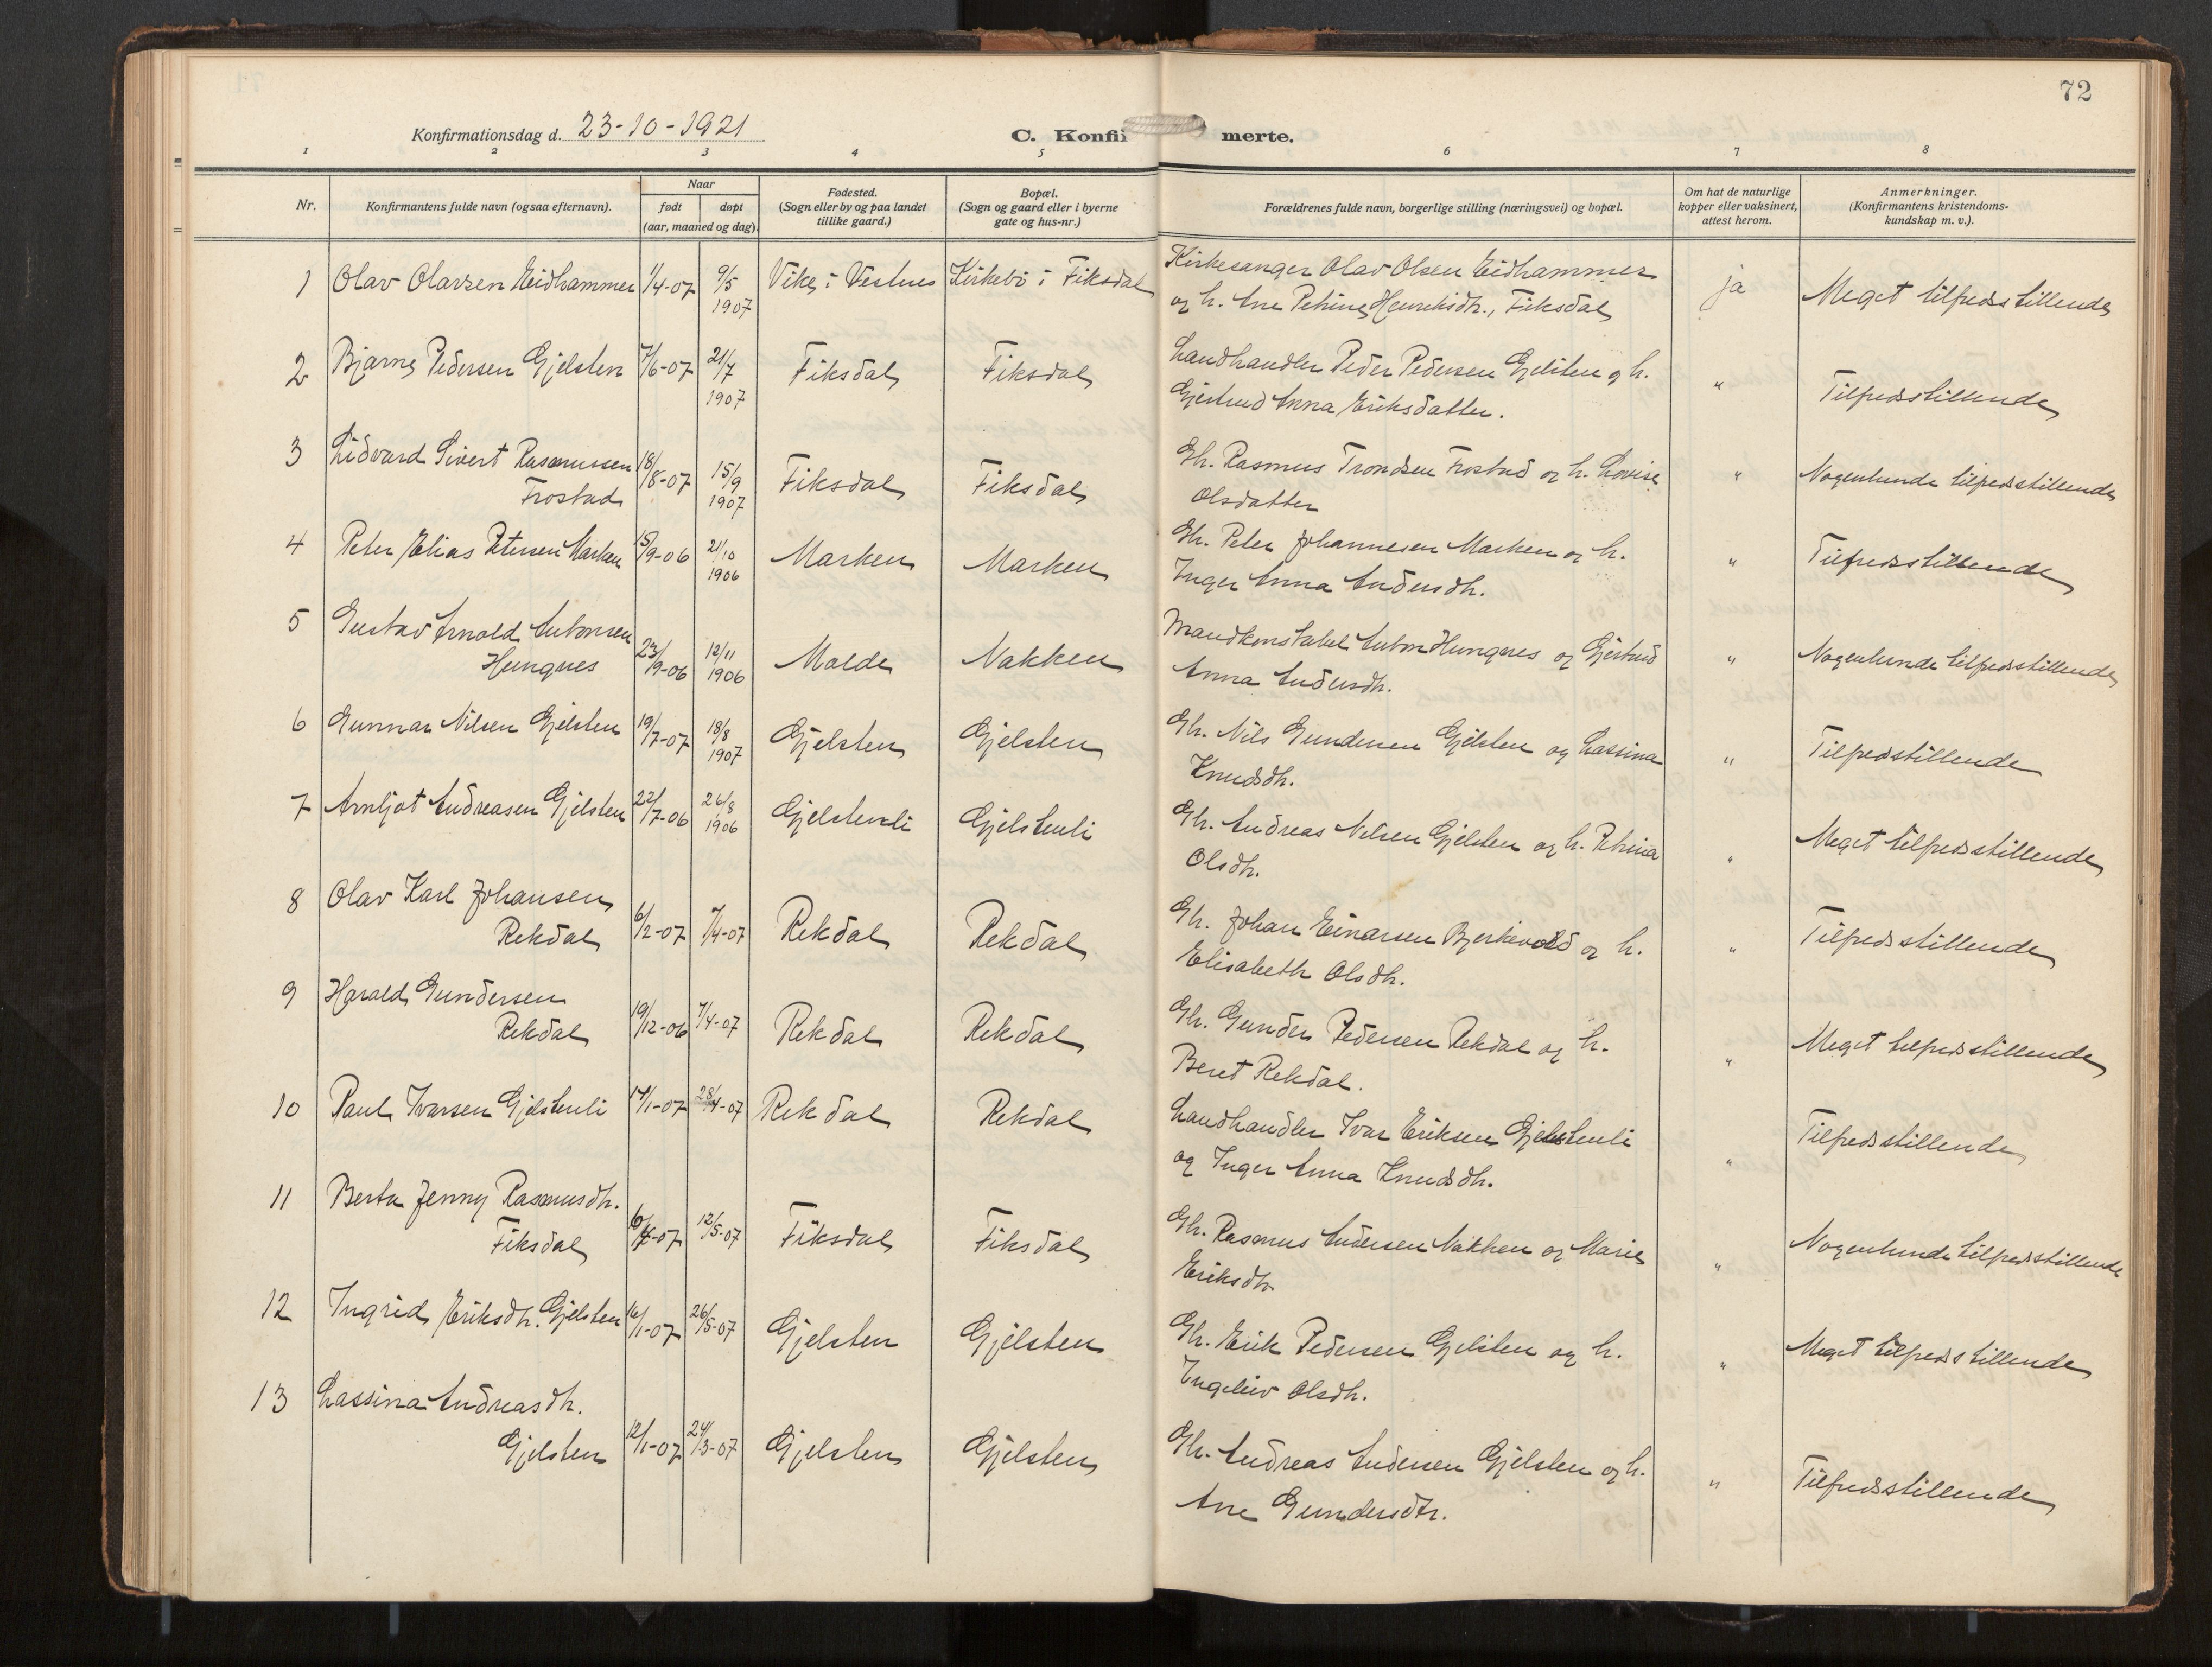 72
Konfirmationsdag d. 23-10-1921
C. Konfirmerte.
1 2 3 4 5 6 7 8
Nr.
Konfirmantens fulde navn (ogsaa efternavn).
Naar
født døpt
(aar, maaned og dag).
Fødested.
(Sogn eller by og paa landet
tillike gaard.)
Bopæl.
(Sogn og gaard eller i byerne
gate og hus-nr.)
Forældrenes fulde navn, borgerlige stilling (næringsvei) og bopæl.
Om hat de naturlige
kopper eller vaksinert,
attest herom.
Anmerkninger.
(Konfirmantens kristendoms-
kundskap m. v.).
1 Olav Olavsen Eidhammer 1/4-07 9/5 1907 Vike i Vestnes Kirkebö i Fiksdal Kirkesanger Olav Olsen Eidhammer ja Meget tilfredsstillende
og h. Ane Petrine Henriksdtr., Fiksdal
2 Bjarne Pedersen Gjelsten 7/6-07 21/7 1907 Fiksdal Fiksdal Landhandler Peder Pedersen Gjelsten og h. " Tilfredsstillende
Gjertrud Anna Eriksdatter.
3 Lidvard Sivert Rasmussen 18/8-07 15/9 1907 Fiksdal Fiksdal Gbr. Rasmus Trondsen Frostad og h. Lovise " Nogenlunde tilfredsstillende
Frostad Olsdatter
4 Peter Elias Petersen Marken 15/9-06 21/10 1906 Marken Marken Gbr. Peter Johannesen Marken og h. " Tilfredsstillende
Inger Anna Andersdtr.
5 Gustav Arnold Antonsen
Hungnes 23/9-06 12/11 1906 Molde Nakken Mandkonstabel Anton Hungnes og Gjertrud " Nogenlunde tilfredsstillende
Anna Andersdtr.
6 Gunnar Nilsen Gjelsten 19/7-07 18/8 1907 Gjelsten Gjelsten Gbr. Nils Gundersen Gjelsten og Lassina " Tilfredstillende
Knudsdtr.
7 Arnljot Andreasen Gjelsten 22/7-06 26/8 1906 Gjelstenli Gjelstenli Gbr. Andreas Nilsen Gjelsten og h. Petrina " Meget tilfredsstillende
Olsdtr.
8 Olav Karl Johansen
Rekdal 6/2-07 7/4-07 Rekdal Rekdal Gbr. Johan Einarsen Bjerkevold og h. " Tilfredsstillende
Elisabeth Olsdtr.
9 Harald Gundersen
Rekdal 19/12-06 7/4-07 Rekdal Rekdal Gbr. Gunder Pedersen Rekdal og h. " Meget tilfredsstillende
Beret Rekdal.
10 Paul Ivarsen Gjelstenli 14/1-07 28/4-07 Rekdal Rekdal Landhandler Ivar Eriksen Gjelstenli " Tilfredsstillende
og Inger Anna Knudsdtr.
11 Berta Jenny Rasmusdtr.
Fiksdal 12/5-07 Fiksdal Fiksdal Gbr. Rasmus Andersen Nakken og Marie " Nogenlunde tilfredsstillende
Eriksdtr
12 Ingrid Eriksdtr. Gjelsten 16/1-07 26/5-07 Gjelsten Gjelsten Gbr. Erik Pedersen Gjelsten og h. " Meget tilfredsstillende
Ingeleiv Olsdtr.
13 Lassina Andreasdtr.
Gjelsten 12/1-07 24/3-07 Gjelsten Gjelsten Gbr. Andreas Andersen Gjelsten og h. " Tilfredsstillende
Ane Gundersdtr.